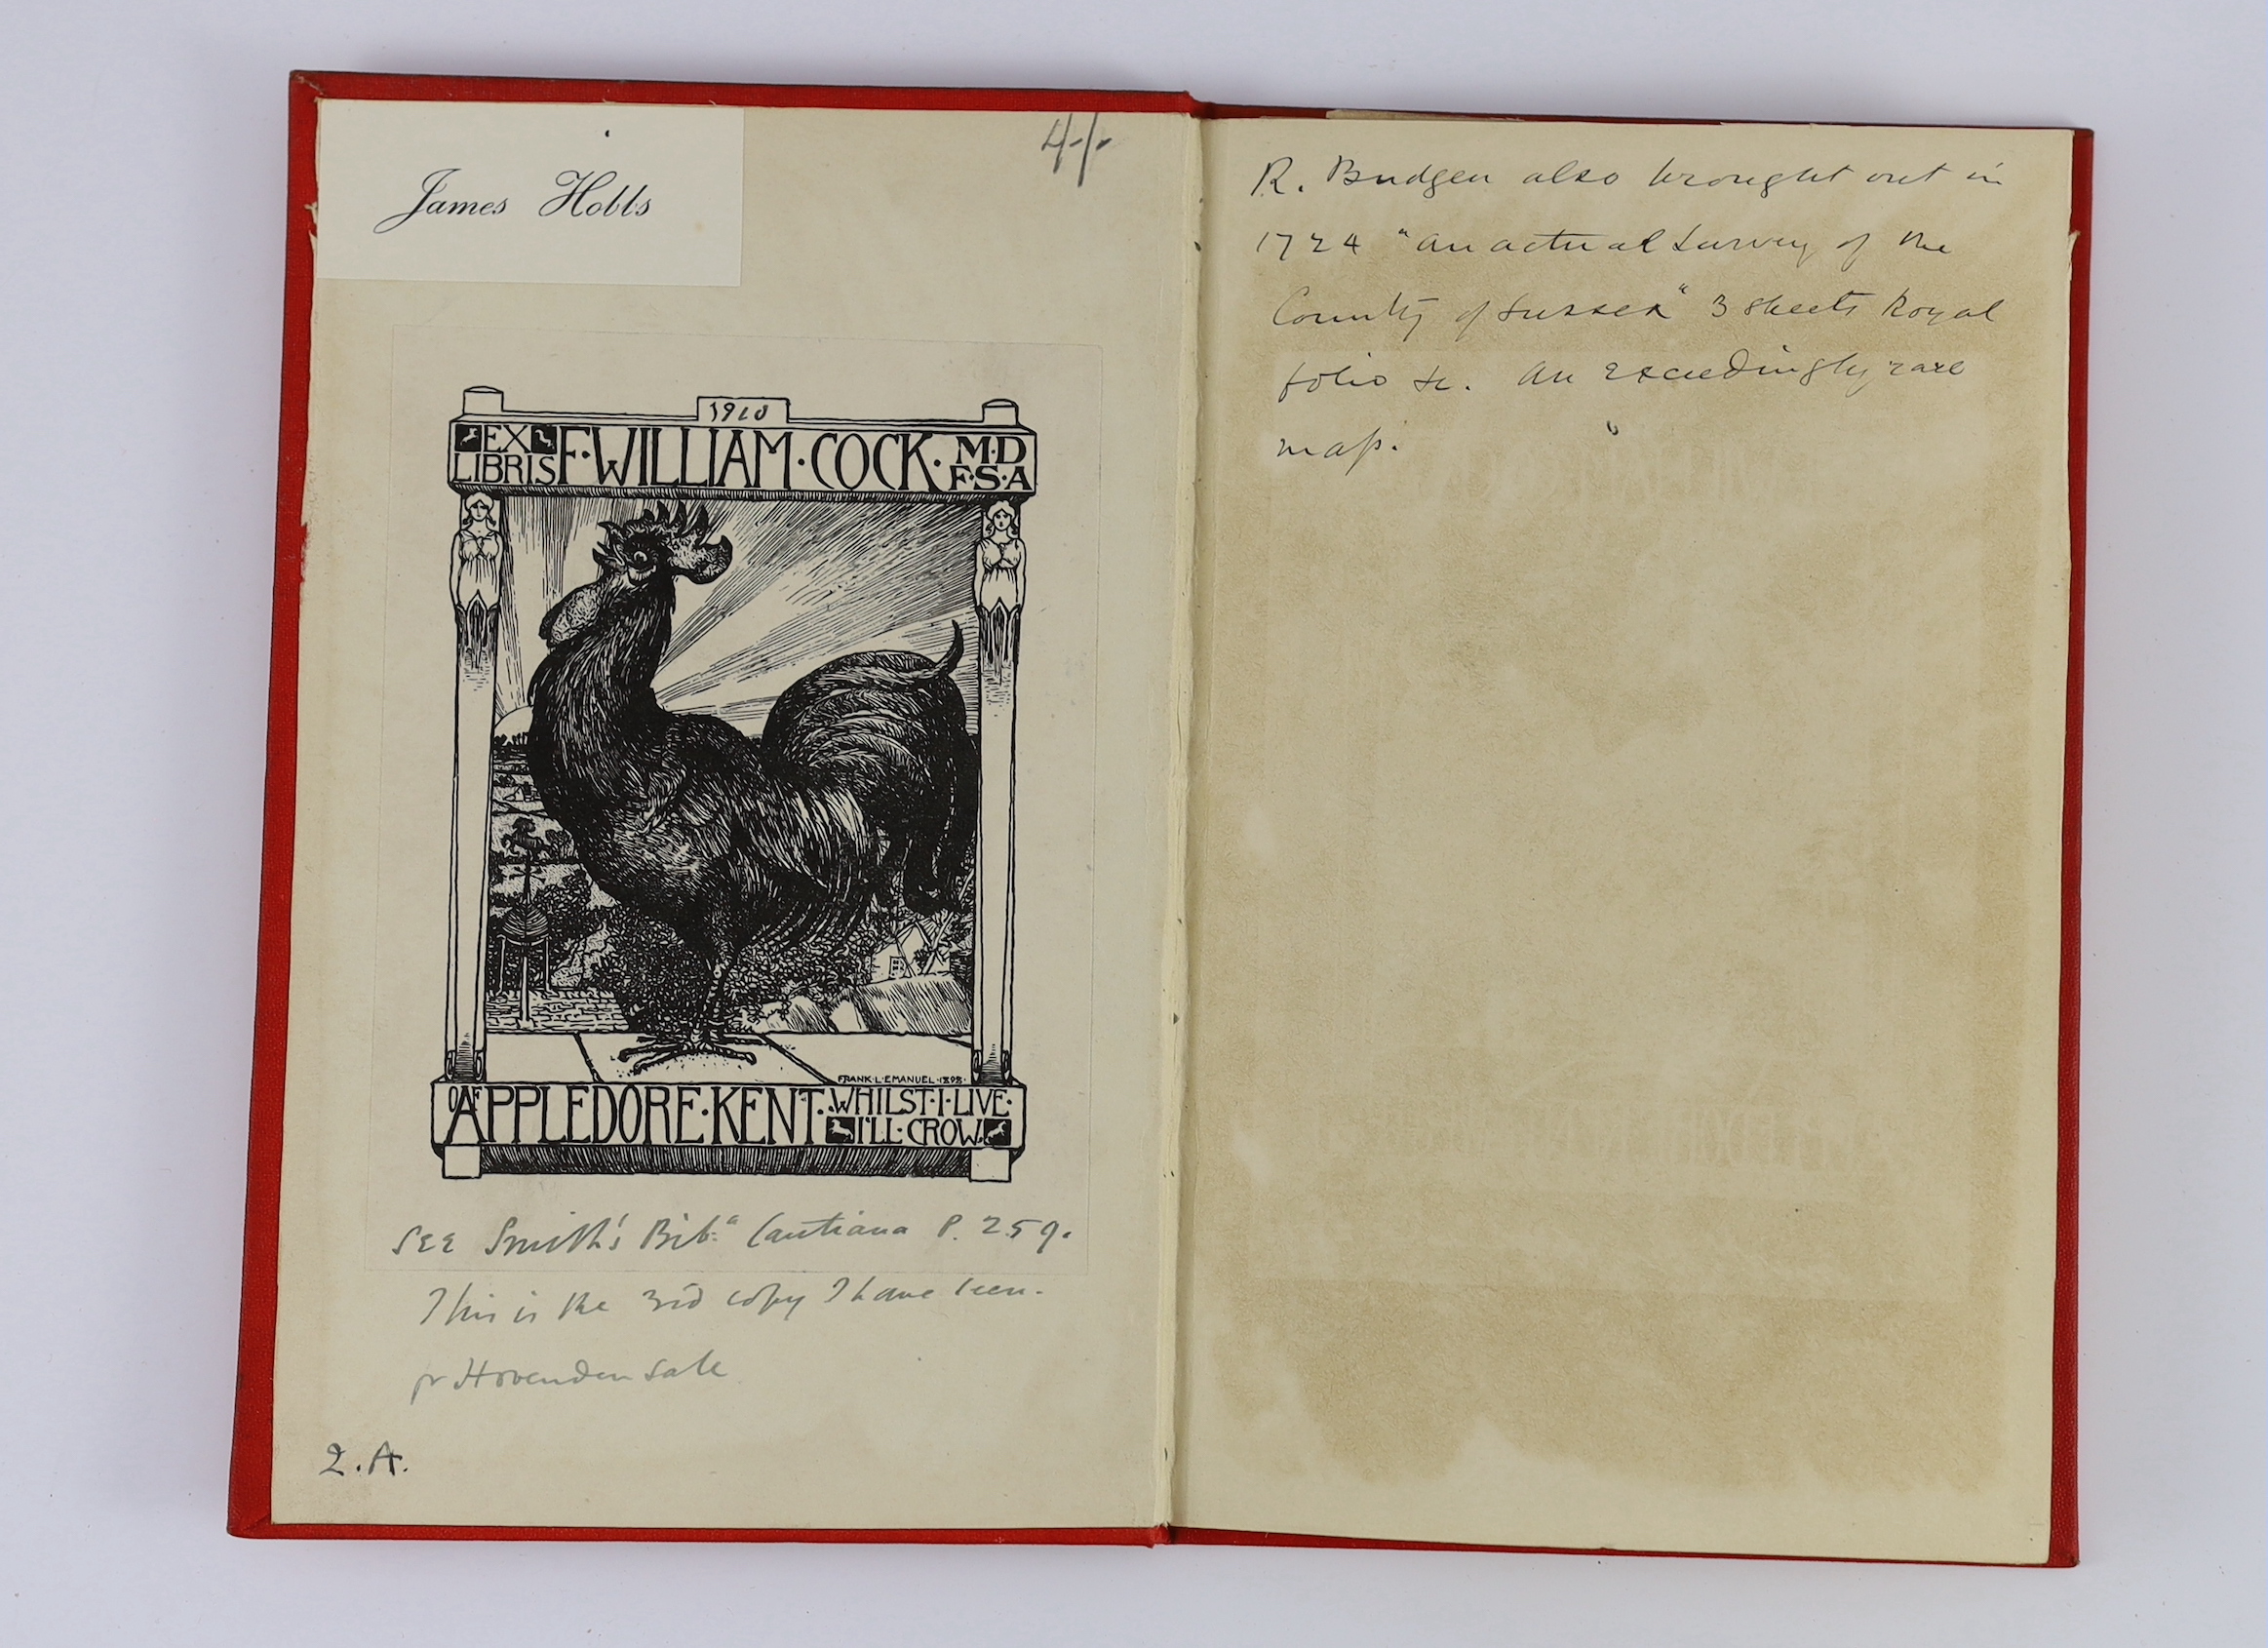 James Hobbs
4/-
1910
EX LIBRIS F·WILLIAM·COCK·M·D F·S·A
FRANK·L·EMANUEL·1898·
OF APPLEDORE·KENT·WHILST·I·LIVE· I'LL·CROW·
See Smith's Bib:ª Cantiana P. 259.
This is the 3rd copy I have seen.
pr Hovenden Sale
2.A.
R. Budgen also brought out in
1724 "An actual Survey of the
County of Sussex" 3 sheets Royal
folio &c. An exceedingly rare
map.